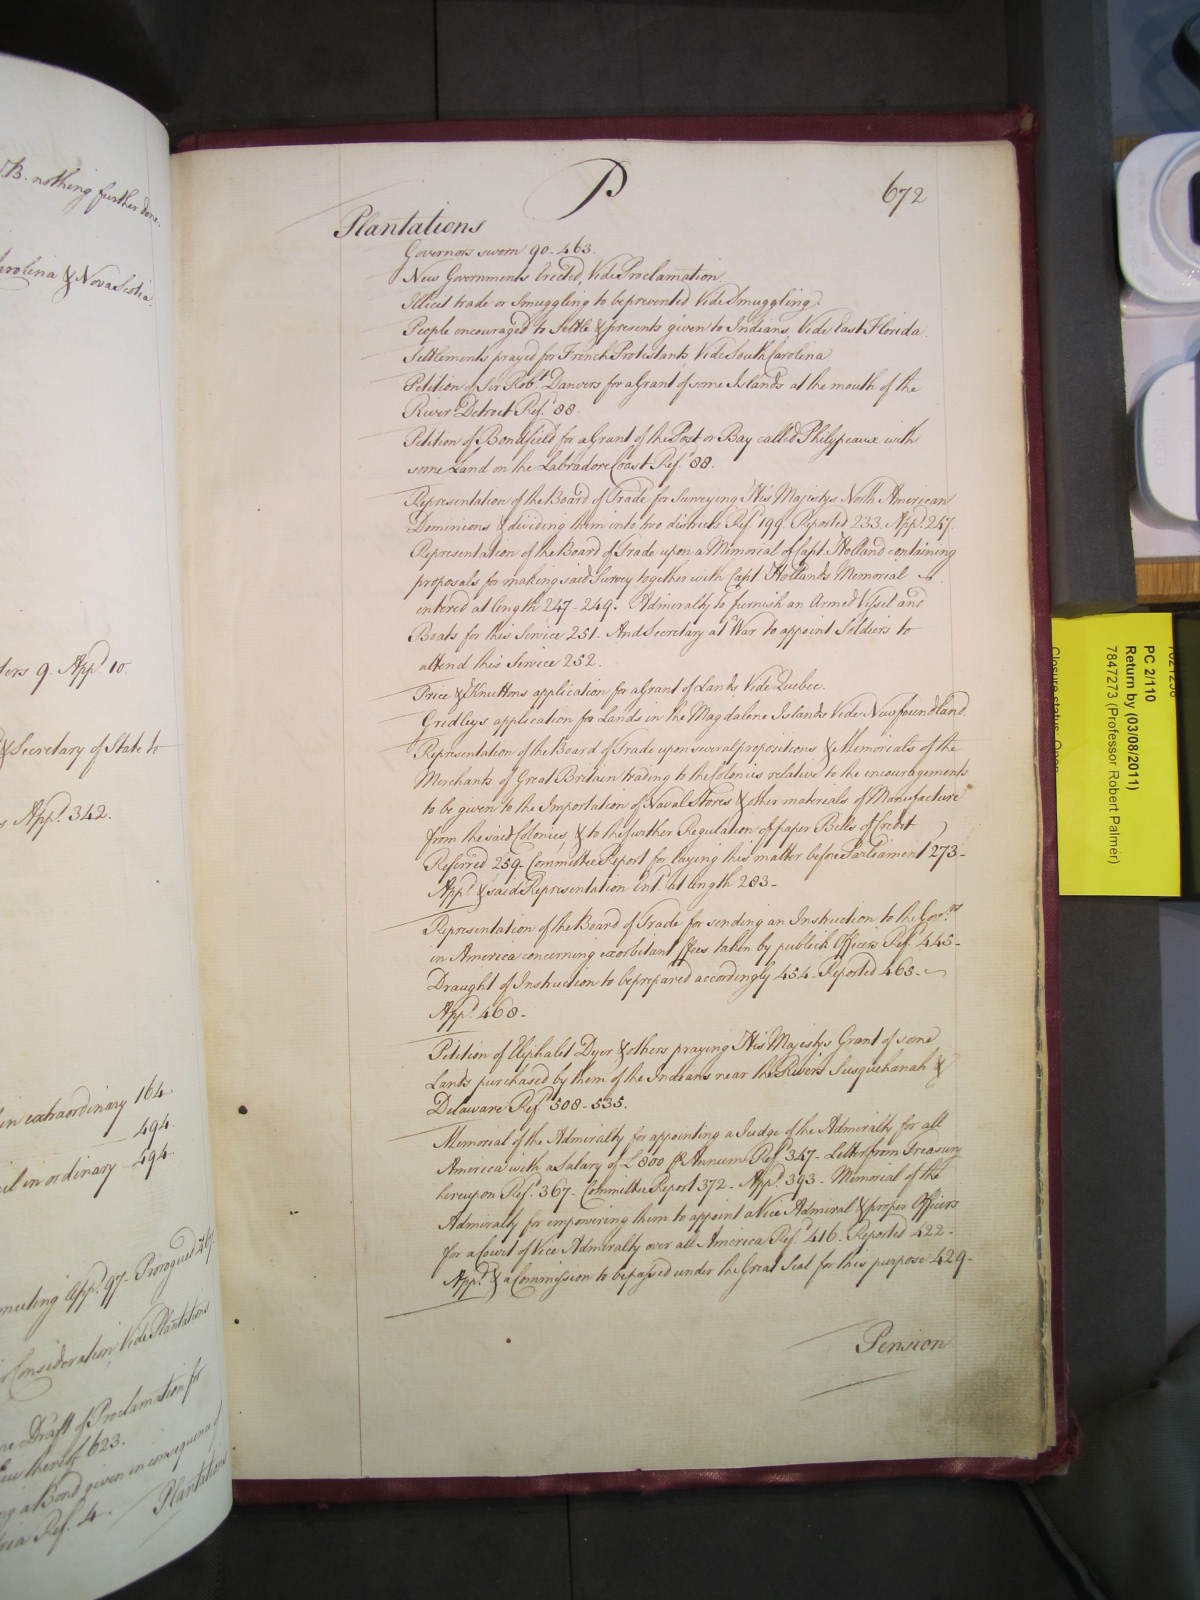 N.B. nothing further done.
Carolina & Nova Scotia
9. App.d 10.
& Secretary of State to
App.d 342.
in extraordinary 164.
494.
in ordinary 494.
App.d 97. Prorogued
Consideration Vide Plantations
Draft of Proclamation for
thereof 623.
a Bond given in consequence of
Ref.d 4.
Plantations
P
672
Plantations
Governors sworn 90. 463.
New Governments Erected, Vide Proclamation
Illicit trade or Smuggling to be prevented Vide Smuggling.
People encouraged to Settle & presents given to Indians, Vide East Florida.
Settlements prayed for French Protestants Vide South Carolina.
Petition of Sir Rob.t Danvers for a Grant of some Islands at the mouth of the
River Detroit Ref.d 88.
Petition of Bondfield for a Grant of the Post or Bay called Philypeaux with
some Land on the Labradore Coast Ref.d 88.
Representation of the Board of Trade for Surveying His Majestys North American
Dominions & dividing them into two districts Ref.d 199. Reported 233. App.d 247.
Representation of the Board of Trade upon a Memorial of Capt. Holland containing
proposals for making said Survey together with Capt. Hollands Memorial
entered at length 247-249. Admiralty to furnish an Armed Vessel and
Boats for this Service 251. And Secretary at War to appoint Soldiers to
attend this Service 252.
Price & Knuttons application for a Grant of Lands Vide Quebec.
Gridleys application for Lands in the Magdalene Islands Vide Newfoundland
Representation of the Board of Trade upon several propositions & Memorials of the
Merchants of Great Britain trading to the Colonies relative to the encouragements
to be given to the Importation of Naval Stores & other materials of Manufacture
from the said Colonies, & to the further Regulation of paper Bills of Credit
Referred 259- Committee Report for laying this matter before Parliament 273-
App.d & said Representation Ent.d at length 283-
Representation of the Board of Trade for sending an Instruction to the Gov.rs
in America concerning exorbitant ffees taken by publick Officers Ref.d 445-
Draught of Instruction to be prepared accordingly 454- Reported 465-
App.d 468-
Petition of Eliphalet Dyer & others praying His Majestys Grant of some
Lands purchased by them of the Indians near the Rivers Susquehanah &
Delaware Ref.d 508-535.
Memorial of the Admiralty for appointing a Judge of the Admiralty for all
America with a Salary of £800 P Annum Ref.d 347- Letter from Treasury
hereupon Ref.d 367- Committee Report 372- App.d 393- Memorial of the
Admiralty for empowering them to appoint a Vice Admiral & proper Officers
for a Court of Vice Admiralty over all America Ref.d 416- Reported 422-
App.d & a Commission to be passed under the Great Seal for this purpose 429-
Pension
PC 2/110
Return by (03/08/2011)
7847273 (Professor Robert Palmer)
Closure status: Open